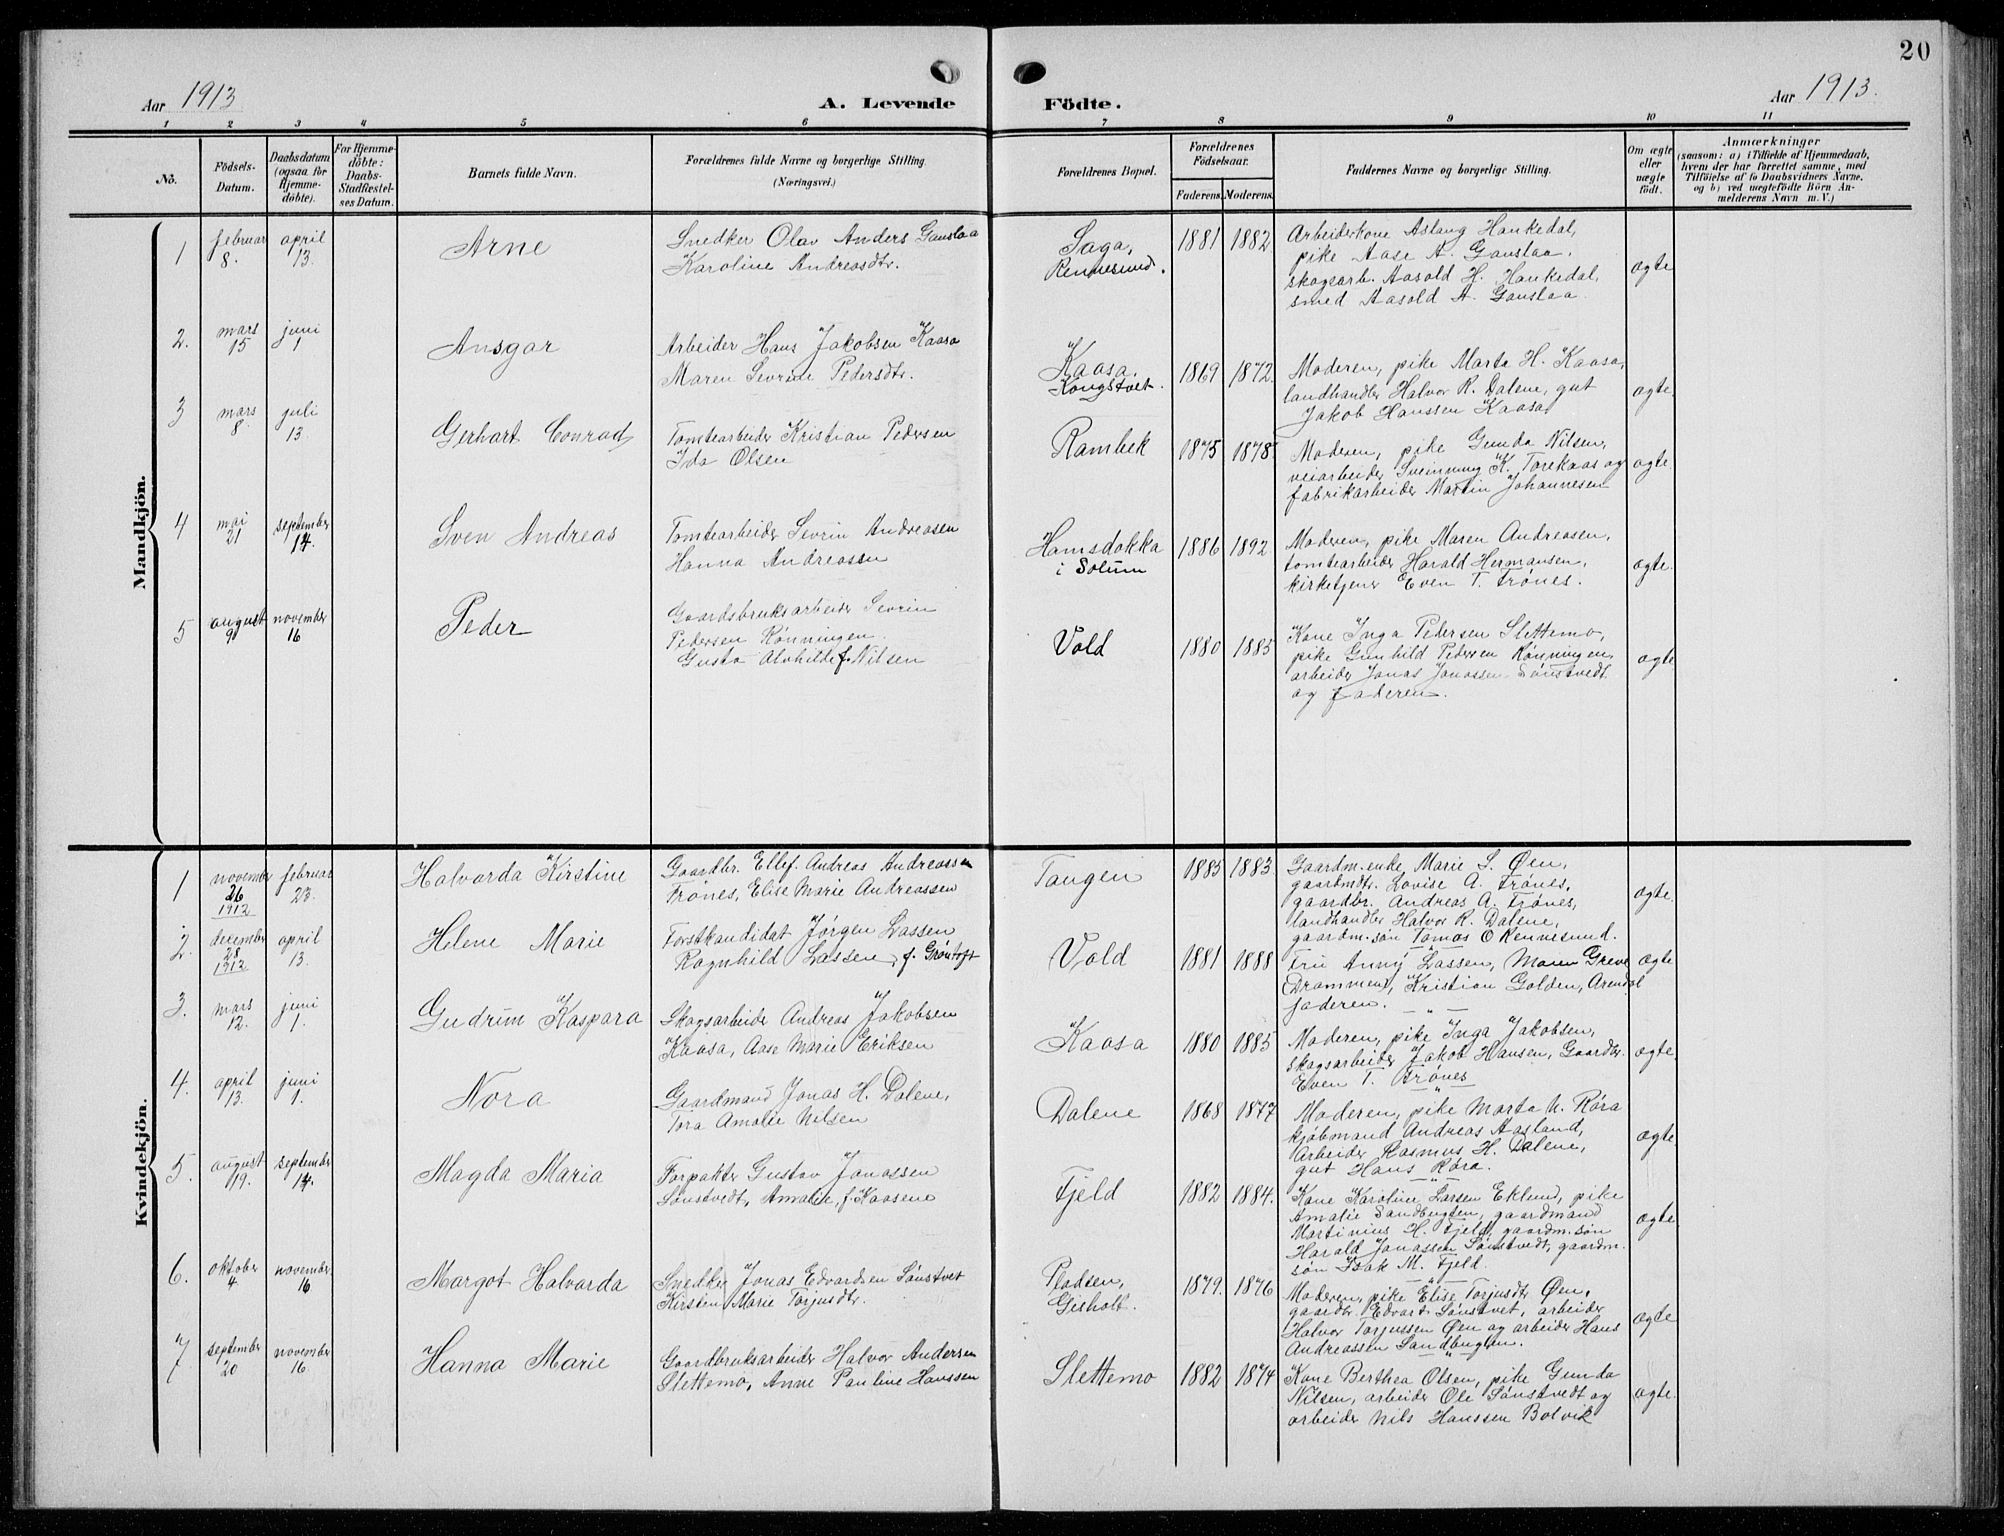 20
Aar 1913
A. Levende
Födte.
Aar 1913.
1 2 3 4 5 6 7 8 9 10 11
No.
Födsels-
Datum.
Daabsdatum
(ogsaa for
Hjemme-
döbte).
For Hjemme-
döbte:
Daabs-
Stadfæstel-
ses Datum.
Barnets fulde Navn.
Forældrenes fulde Navne og borgerlige Stilling.
(Næringsvei.)
Forældrenes Bopæl.
Forældrenes
Födselsaar.
Faderens. Moderens.
Faddernes Navne og borgerlige Stilling.
Om ægte
eller
uægte
födt.
Anmærkninger
(saasom: a) i Tilfælde af Hjemmedaab,
hvem der har forrettet samme, med
Tilföielse af to Daabsvidners Navne,
og b) ved uægtefödte Börn An-
melderens Navn m. V.)
Mandkjön.
1
februar
8.
april
13.
Arne
Snedker Olav Anders Gauslaa
Karoline Andreasdtr.
Saga,
Rennesund.
1881
1882
Arbeiderkone Aslaug Haukedal,
pike Aase A. Gauslaa,
skogsarb. Aasold H. Haukedal,
smed Aasold A. Gauslaa.
ægte
2.
mars
15
juni
1
Ansgar
Arbeider Hans Jakobsen Kaasa
Maren Sevrine Pedersdtr.
Kaasa,
Kongstvet.
1869
1872.
Moderen, pike Marta H. Kaasa,
landhandler Halvor R. Dalene, gut
Jakob Hanssen Kaasa
ægte.
3
mars
8
juli
13.
Gerhart Conrad
Tomtearbeider Kristian Pedersen
Ida Olsen
Rambek
1875
1878.
Moderen, pike Gunda Nilsen,
veiarbeider Svenning K. Torekaas og
fabrikarbeider Martin Johannesen
ægte.
4
mai
21
september
14.
Sven Andreas
Tomtearbeider Sevrin Andreasen
Hanna Andreassen
Hamsdokka
i Solum
1886
1892
Moderen, pike Maren Andreasen,
tomtearbeider Harald Hermansen,
kirketjener Even T. Trönes.
ægte.
5
august
9
november
16
Peder
Gaardsbruksarbeider Sevrin
Pedersen Rönningen.
Gusta Alvhilde f. Nilsen
Vold
1880
1885
Kone Inga Pedersen Slettemo,
pike Gunhild Pedersen Rönningen,
arbeider Jonas Jonassen Sönstvedt
og faderen.
ægte
Kvindekjön.
1
november
26
1912
februar
23.
Halvarda Kirstine
Gaardbr. Ellef Andreas Andreassen
Trönes, Elise Marie Andreassen
Tangen
1885
1883.
Gaardm.enke Marie S. Øen,
gaardmdtr. Lovise A. Trönes,
gaardbr. Andreas A. Trönes,
landhandler Halvor R. Dalene,
gaardm.sön Tomas O Rennesund.
ægte.
2.
december
28
1912
april
13.
Helene Marie
Forstkandidat Jörgen Lassen
Ragnhild Lassen, f. Gröntoft
Vold
1881
1888
Fru Anny Lassen, Maren Greve
Drammen, Kristian Golden, Arendal
faderen.
ægte
3.
mars
12.
juni
1.
Gudrun Kaspara
Skogsarbeider Andreas Jakobsen
Kaasa, Aase Marie Eriksen
Kaasa
1880
1885
Moderen, pike Inga Jakobsen,
skogsarbeider Jakob Hansen, Gaardbr.
Even T. Trönes
ægte.
4.
april
13.
juni
1.
Nora
Gaardmand Jonas H. Dalene,
Tora Amalie Nilsen
Dalene
1868
1877
Moderen, pike Marta N. Röra
kjöbmand Andreas Aasland,
Arbeider Rasmus H. Dalene,
gut Hans Röra.
ægte
5.
august
19.
september
14.
Magda Maria
Forpakter Gustav Jonassen
Sönstvedt, Amalie, f. Kaasene
Fjeld
1882
1884.
Kone Karoline Larsen Eklund, pike
Amalie Sandbugten, gaardmand
Martinius H. Fjeld, gaardm.sön
Harald Jonassen Sönstvedt, gaardm.
sön Isak M. Fjeld.
ægte.
6.
oktober
4
november
16
Margot Halvarda
Snedker Jonas Edvardsen Sönstvet
Kirsten Marie Torjusdtr.
Pladsen,
Gisholt.
1879.
1876
Moderen, pike Elise Torjusdtr Øen,
gaardbr. Edvart Sönstvet, arbeider
Halvor Torjussen Øen og arbeider Hans
Andreassen Sandbugten.
ægte
7
september
20
november
16
Hanna Marie
Gaardbruksarbeider Halvor Andersen
Slettemo, Anne Pauline Hanssen
Slettemo
1882
1874
Kone Berthea Olsen, pike Gunda
Nilsen, arbeider Ole Sönstvedt og
arbeider Nils Hanssen Bolvik
ægte.